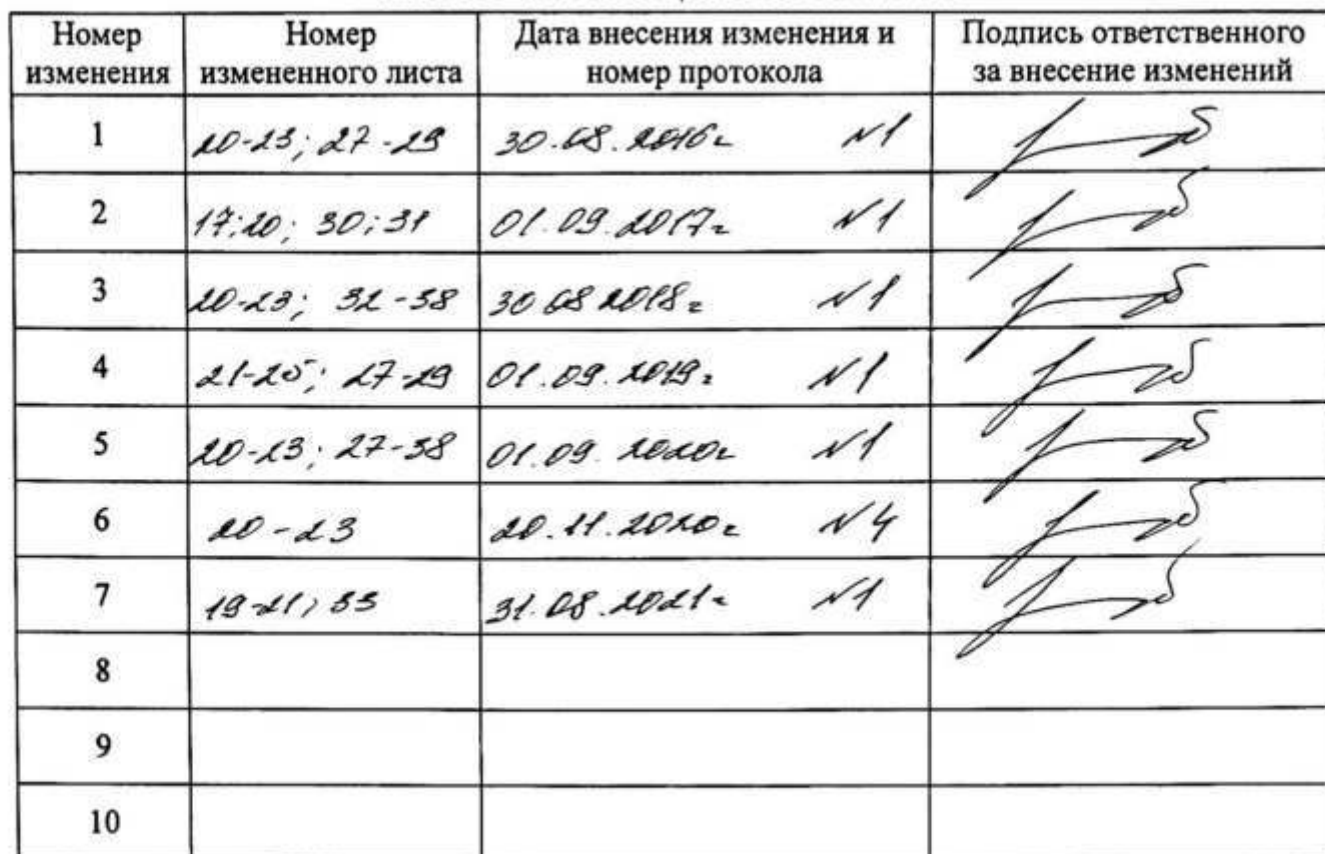 Номер изменения | Номер измененного листа | Дата внесения изменения и номер протокола | Подпись ответственного за внесение изменений
1 | 20-23; 27-29 | 30.08.2016г №1
2 | 17; 20; 30; 31 | 01.09.2017г №1
3 | 20-23; 32-38 | 30.08.2018г №1
4 | 21-25; 27-29 | 01.09.2019г №1
5 | 20-23; 27-38 | 01.09.2020г №1
6 | 20-23 | 20.11.2020г №4
7 | 19-21; 33 | 31.08.2021г №1
8
9
10